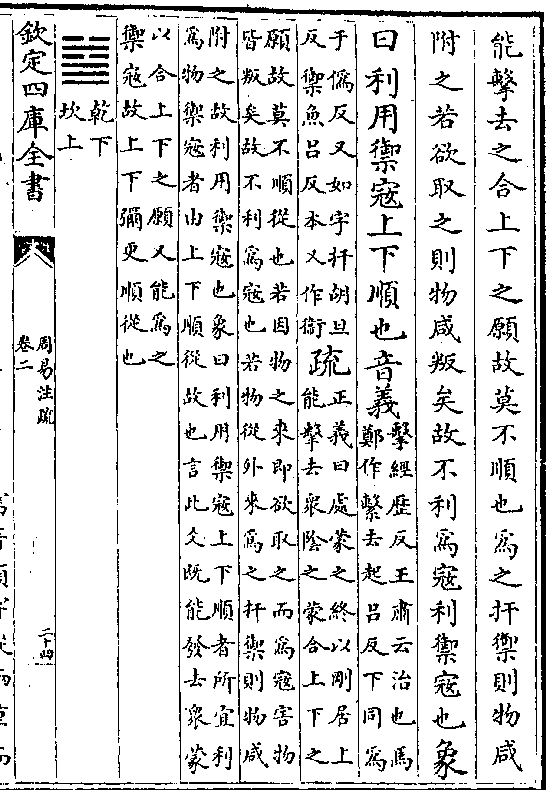 能擊去之合上下之願故莫不順也為之扞禦則物咸
附之若欲取之則物咸叛矣故不利為寇利禦寇也象
曰利用禦寇上下順也音義
擊經歷反王肅云治也馬
鄭作繫去起呂反下同為
于偽反又如字扞胡旦
反禦魚呂反本又作衛
疏
正義曰處蒙之終以剛居上
能擊去衆陰之蒙合上下之
願故莫不順從也若因物之來即欲取之而為寇害物
皆叛矣故不利為寇也若物從外來為之扞禦則物咸
附之故利用禦寇也象曰利用禦寇上下順者所宜利
為物禦寇者由上下順從故也言此爻既能發去衆蒙
以合上下之願又能為之
禦寇故上下彌更順從也
䷄
乾下
坎上
欽定四庫全書
周易注疏
卷二
二十四